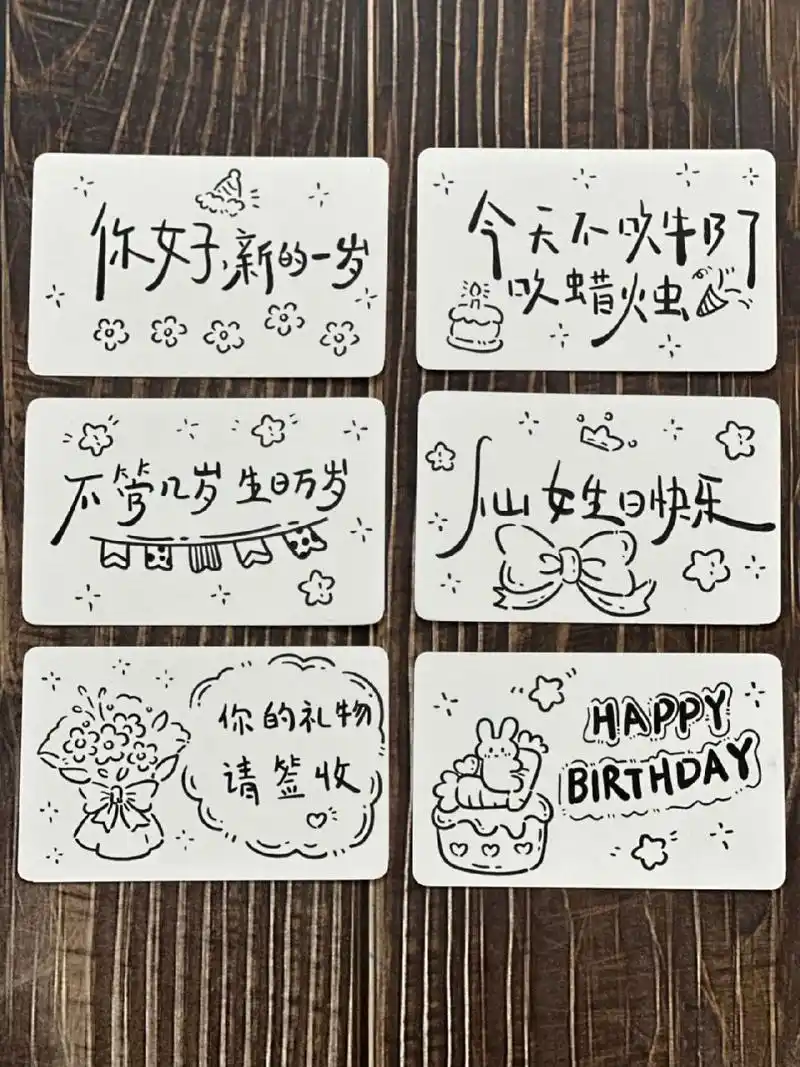 你好,新的一岁
今天不吹牛了
吹蜡火虫
不管几岁 生日万岁
仙女生日快乐
你的礼物
请签收
HAPPY
BIRTHDAY